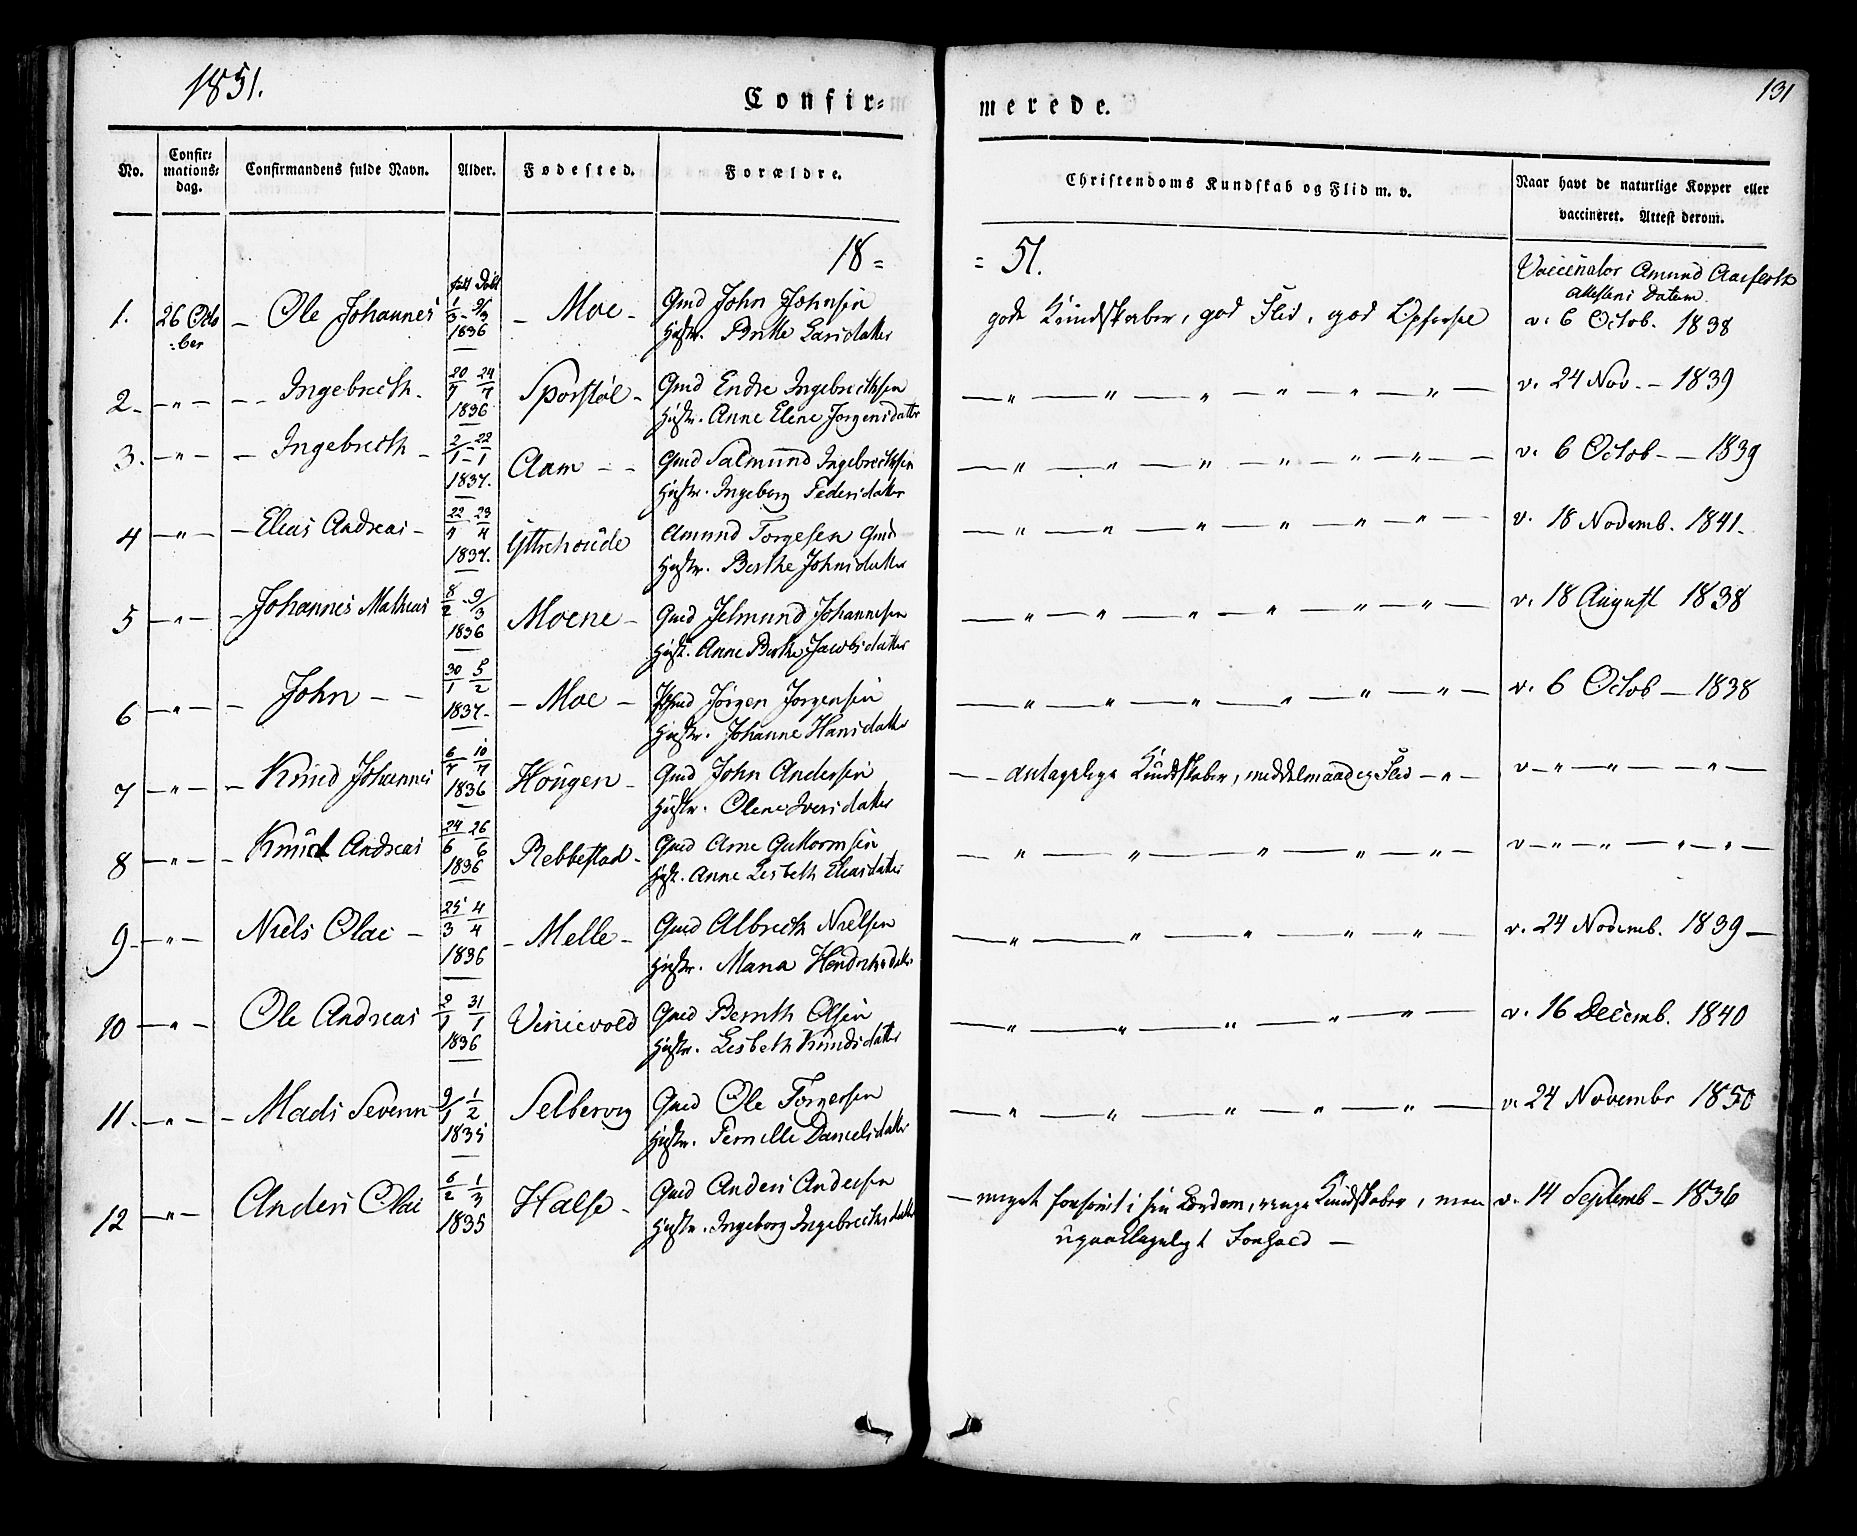 1851.
131
Confir=
merede.
No.
Confir-
mations-
dag.
Confirmandens fulde Navn.
Alder.
Fødested.
Forældre.
Christendoms Kundskab og Flid m. v.
Naar havt de naturlige Kopper eller
vaccineret. Attest derom.
18 =
= 51.
Vaccinator Amund Aarseth
Attestens Datum
1. 26 Octo :ber — Ole Johannes 1/3 - 9/3 1836 — Moe — Gmd John Johnsen
Hustr. Britte Larsdatter
gode Kundskaber, god Flid, god Opførsel v. 6 Octob. 1838
2. — " — — Ingebrecth — 20/7 24/7 1836 Sporstøl — Gmd Endre Ingebrecthsen
Hustr. Anne Elene Jørgensdatter
— " — " — " — " — " — " — v. 24 Nov. — 1839
3. — " — — Ingebrecth — 2/1 - 22/1 1837. Aam — — Gmd Salmund Ingebrecthsen
Hustr. Ingeborg Pedersdatter
— " — " — " — " — " — " — v. 6 Octob — — 1839
4 — " — — Elias Andreas — 22/4 23/4 1837. Yttrehoude Amund Torgesen Gmd
Hustr. Berthe Johnsdatter
— " — " — " — " — " — " — v. 18 Novemb. 1841.
5 — " — — Johannes Mathias 8/2 - 9/3 1836 Moene — Gmd Jelmund Johannesen
Hust. Anne Berthe Jacobsdatter
— " — " — " — " — " — " — v. 18 August 1838
6 — " — — John — — 30/1 5/2 1837. — Moe — Gmd Jørgen Jørgensen
Hustr. Johanne Hansdatter
— " — " — " — " — " — " — v. 6 Octob — 1838
7 — " — — Knud Johannes 6/7 10/7 1836 Hougen — Gmd John Andersen
Hustr. Olene Iversdatter
— — antagelige Kundskaber, middelmaadig Flid — " — v — " — " — " —
8 — " — — Knud Andreas 24/6 26/6 1836 Rebbestad — Gmd Arne Guttormsen
Hust. Anne Lisbeth Eliasdatter
— " — " — " — " — " — v — " — " — " — " —
9 — " — Niels Olai — 25/3 4/4 1836 — Melle — Gmd Albrecth Nielsen
Hustr. Maria Hendricksdatter
— " — " — " — " — " — v. 24 Novemb. 1839 —
10 — " — Ole Andreas 2/1 31/1 1836 Vinievold Gmd Bernth Olsen
Hustr. Lisbeth Knudsdatter
— " — " — " — " — " — v. 16 Decemb. 1840
11. — " — — Mads Severin 9/1 1/2 1835 Selbervig Gmd Ole Torgersen
Hustr. Pernille Danielsdatter
— " — " — " — " — " — v. 24 Novembr 1850
12 — " — Anders Olai 6/2 1/3 1835 Halse — Gmd Anders Andersen
Hustr. Ingeborg Ingebrecthsdatter
— meget forsømt i sin Lærdom, ringe Kundskaber, men v. 14 Septemb — 1836
upaaklageligt Forhold —